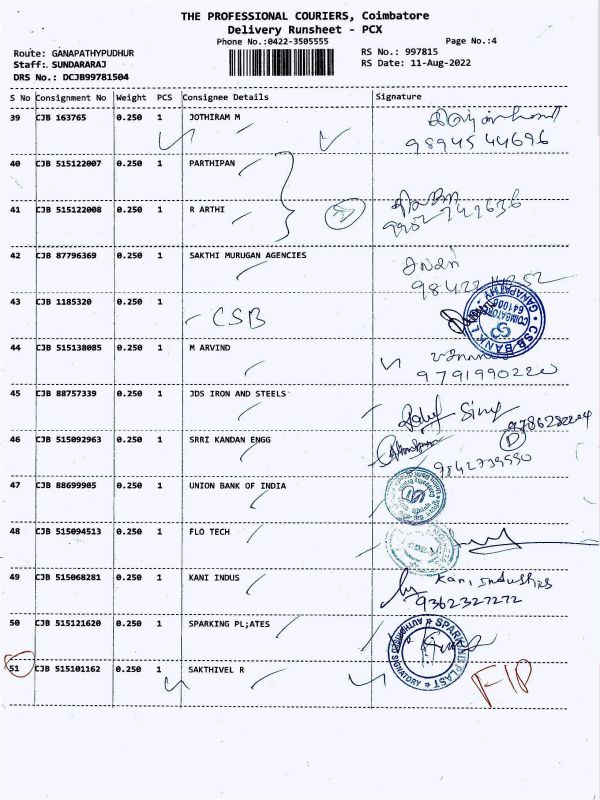 THE PROFESSIONAL COURIERS, Coimbatore
Delivery Runsheet - PCX
Phone No.:0422-3505555
Page No.:4
Route: GANAPATHYPUDHUR
RS No.: 997815
Staff: SUNDARARAJ
RS Date: 11-Aug-2022
DRS No.: DCJB99781504
S No Consignment No Weight PCS Consignee Details Signature
39 CJB 163765 0.250 1 JOTHIRAM M
98945 44696
40 CJB 515122007 0.250 1 PARTHIPAN
41 CJB 515122008 0.250 1 R ARTHI
42 CJB 87796369 0.250 1 SAKTHI MURUGAN AGENCIES
43 CJB 1185320 0.250 1 CSB
CSB BANK
GANAPATHY
COIMBATORE
44 CJB 515138085 0.250 1 M ARVIND
45 CJB 88757339 0.250 1 JDS IRON AND STEELS
Singh
46 CJB 515092963 0.250 1 SRRI KANDAN ENGG
47 CJB 88699905 0.250 1 UNION BANK OF INDIA
48 CJB 515094513 0.250 1 FLO TECH
49 CJB 515068281 0.250 1 KANI INDUS
Kani industries
9362327272
50 CJB 515121620 0.250 1 SPARKING PL;ATES
AUTHORISED SIGNATORY
51 CJB 515101162 0.250 1 SAKTHIVEL R